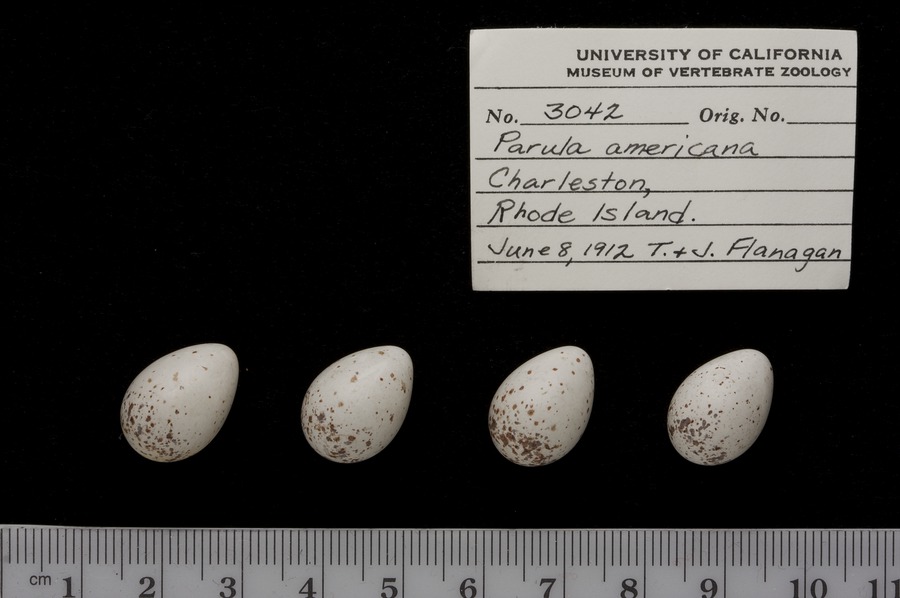 UNIVERSITY OF CALIFORNIA
MUSEUM OF VERTEBRATE ZOOLOGY
No. 3042 Orig. No.
Parula americana
Charleston,
Rhode Island.
June 8, 1912 T. + J. Flanagan
cm 1 2 3 4 5 6 7 8 9 10 11